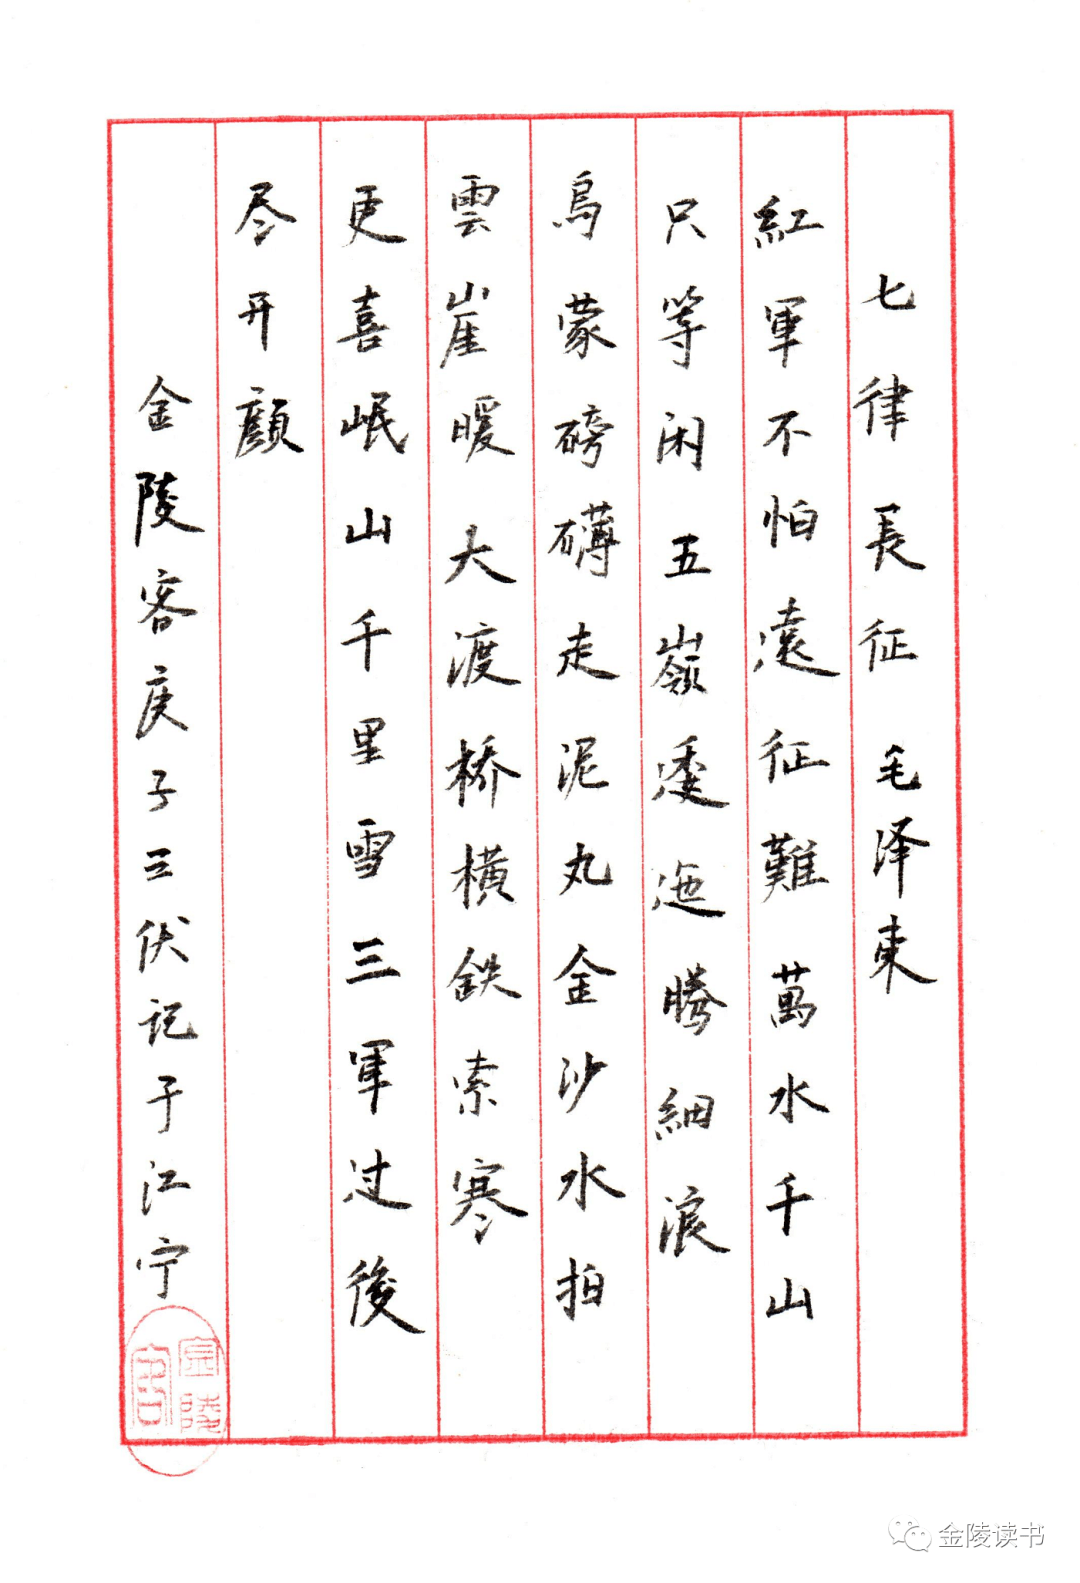 七律長征 毛泽東
紅軍不怕遠征難萬水千山
只等闲五嶺逶迤腾細浪
烏蒙磅礴走泥丸金沙水拍
雲崖暖大渡桥横鉄索寒
更喜岷山千里雪三軍过後
尽开顏
金陵客庚子三伏记于江宁
金陵客
金陵读书